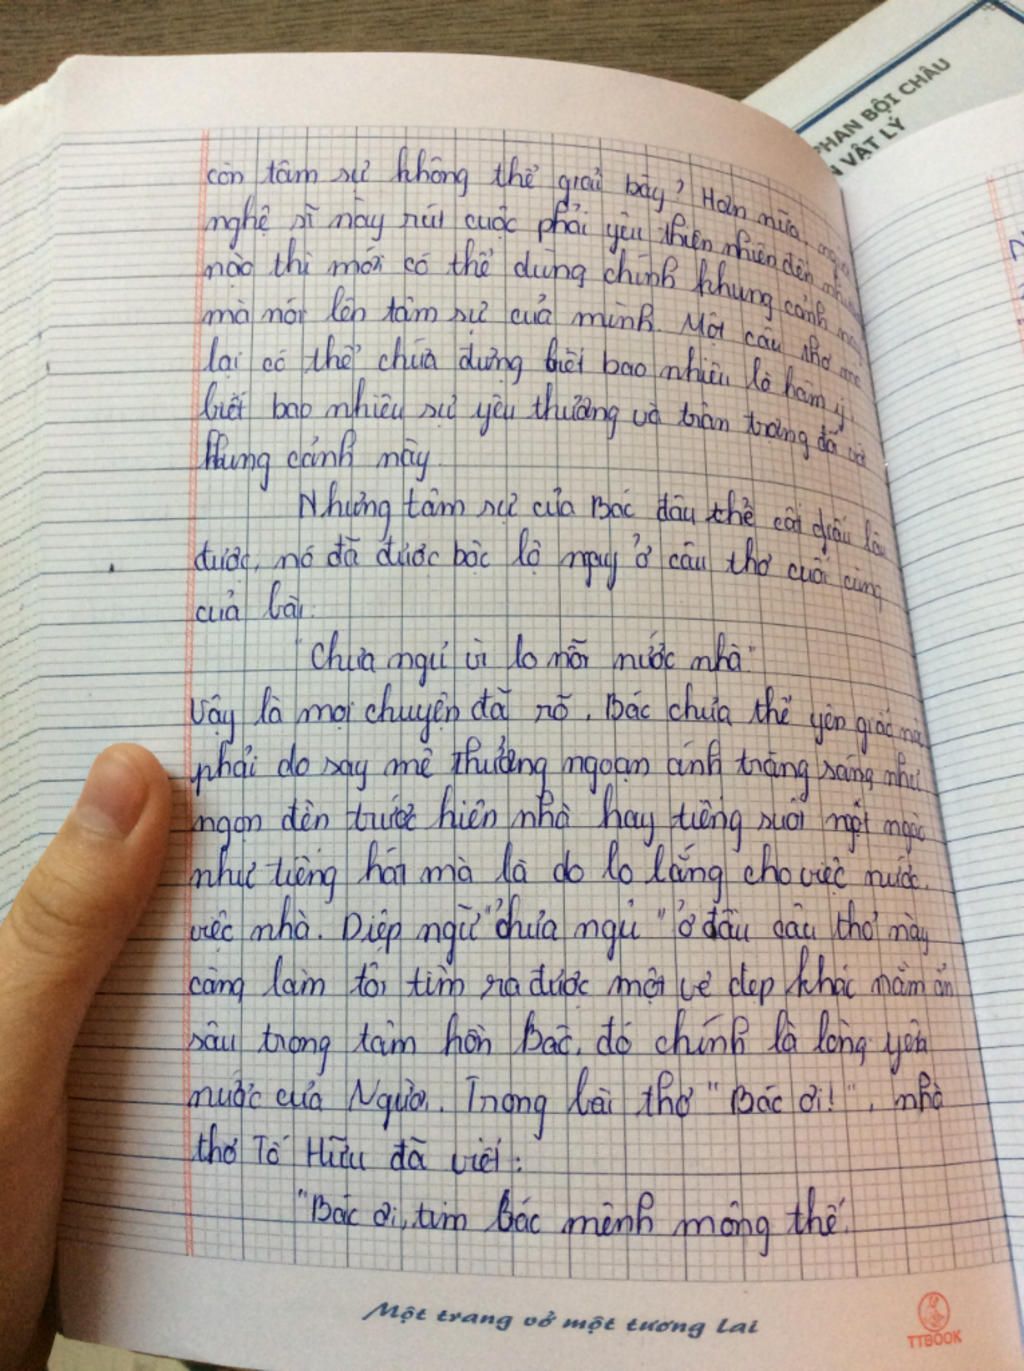 PHAN BỘI CHÂU
VẬT LÝ
còn tâm sự không thể giải bày? Hơn nữa, người
nghệ sĩ này rút cuộc phải yêu thiên nhiên đến
nào thì mới có thể dùng chính khung cảnh này
mà nói lên tâm sự của mình. Một câu thơ mà
lại có thể chứa đựng biết bao nhiêu là hàm ý,
biết bao nhiêu sự yêu thương và trân trọng đối với
khung cảnh này.
Nhưng tâm sự của Bác đâu thể cất giấu lâu
được, nó đã được bộc lộ ngay ở câu thơ cuối cùng
của bài:
"Chưa ngủ vì lo nỗi nước nhà"
Vậy là mọi chuyện đã rõ, Bác chưa thể yên giấc
phải do say mê thưởng ngoạn ánh trăng sáng như
ngọn đèn trước hiên nhà hay tiếng suối ngọt ngào
như tiếng hát mà là do lo lắng cho việc nước,
việc nhà. Diệp ngữ "chưa ngủ" ở đầu câu thơ này
càng làm tôi tìm ra được một vẻ đẹp khác nằm ẩn
sâu trong tâm hồn Bác, đó chính là lòng yêu
nước của Người. Trong bài thơ "Bác ơi!", nhà
thơ Tố Hữu đã viết:
"Bác ơi, tim Bác mênh mông thế
Một trang vở một tương lai
TTBOOK